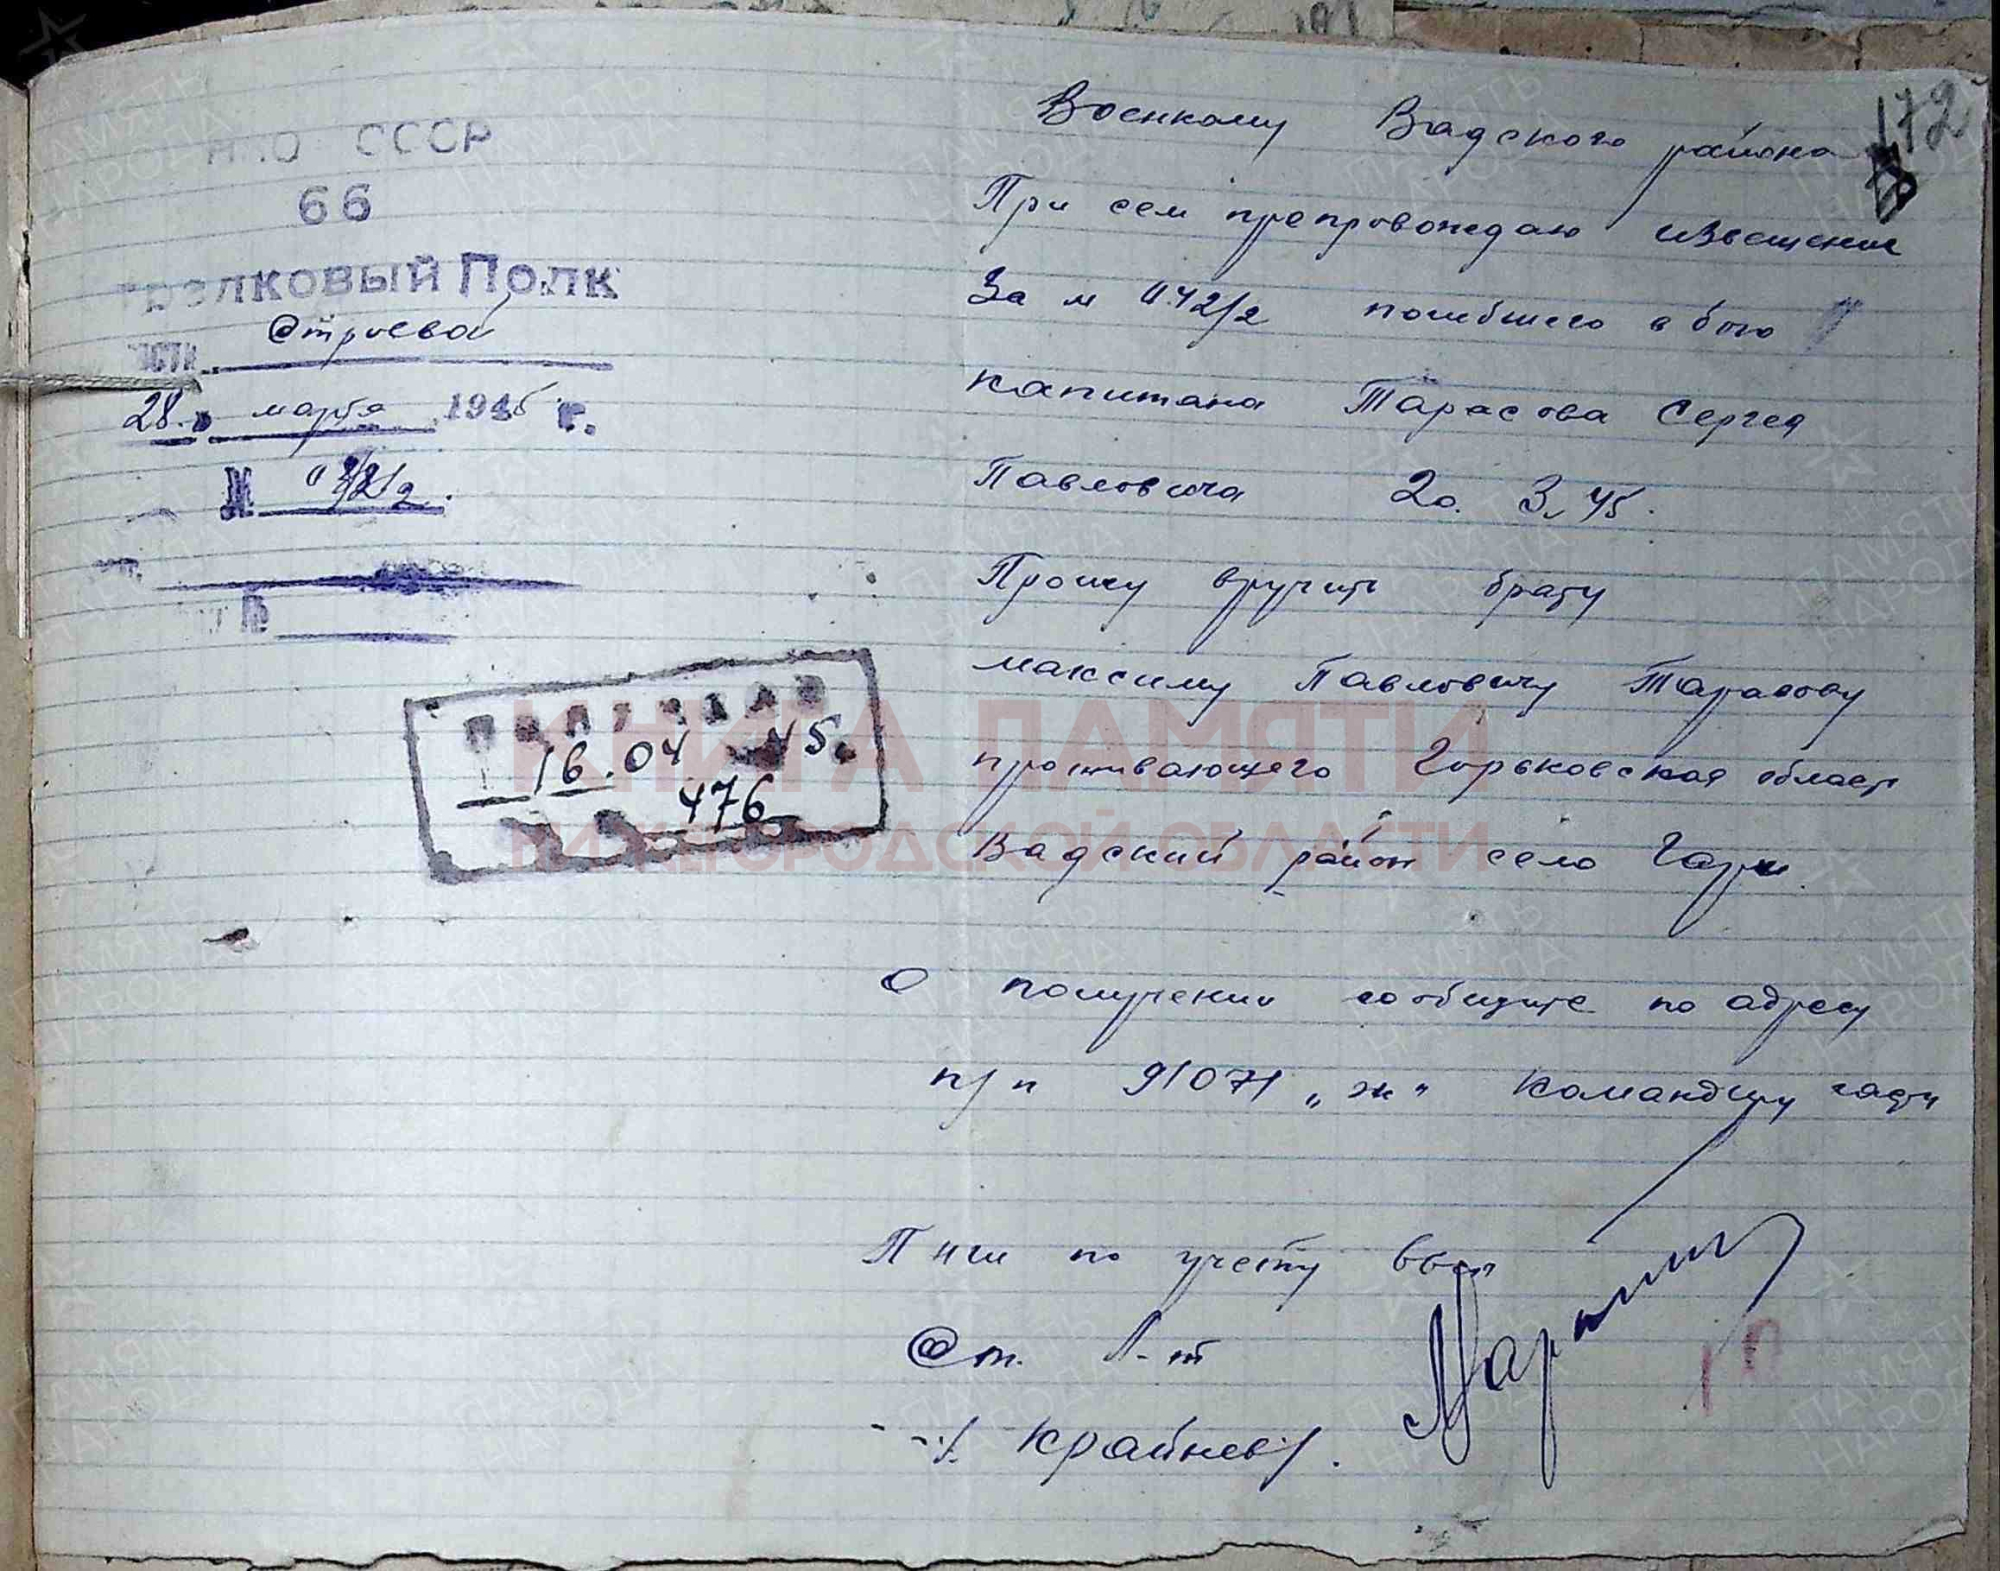 172
НКО СССР
66
Стрелковый Полк
Строевой
части
28. марта 1945 г.
№
№
16.04 45.
476
Военкому Вадского района
При сем препровождаю извещение
За № 042/2 погибшего в бою
капитана Тарасова Сергея
Павловича 20. 3. 45.
Прошу вручить брату
максиму Павловичу Тарасову
проживающего Горьковская област
Вадский район село Гари.
О получении сообщите по адресу
п/п 91071 „ж" командиру части
ПНШ по учету
Ст. Л-т
/Крайнев/.
КНИГА ПАМЯТИ
НИЖЕГОРОДСКОЙ ОБЛАСТИ
ПАМЯТЬ
НАРОДА